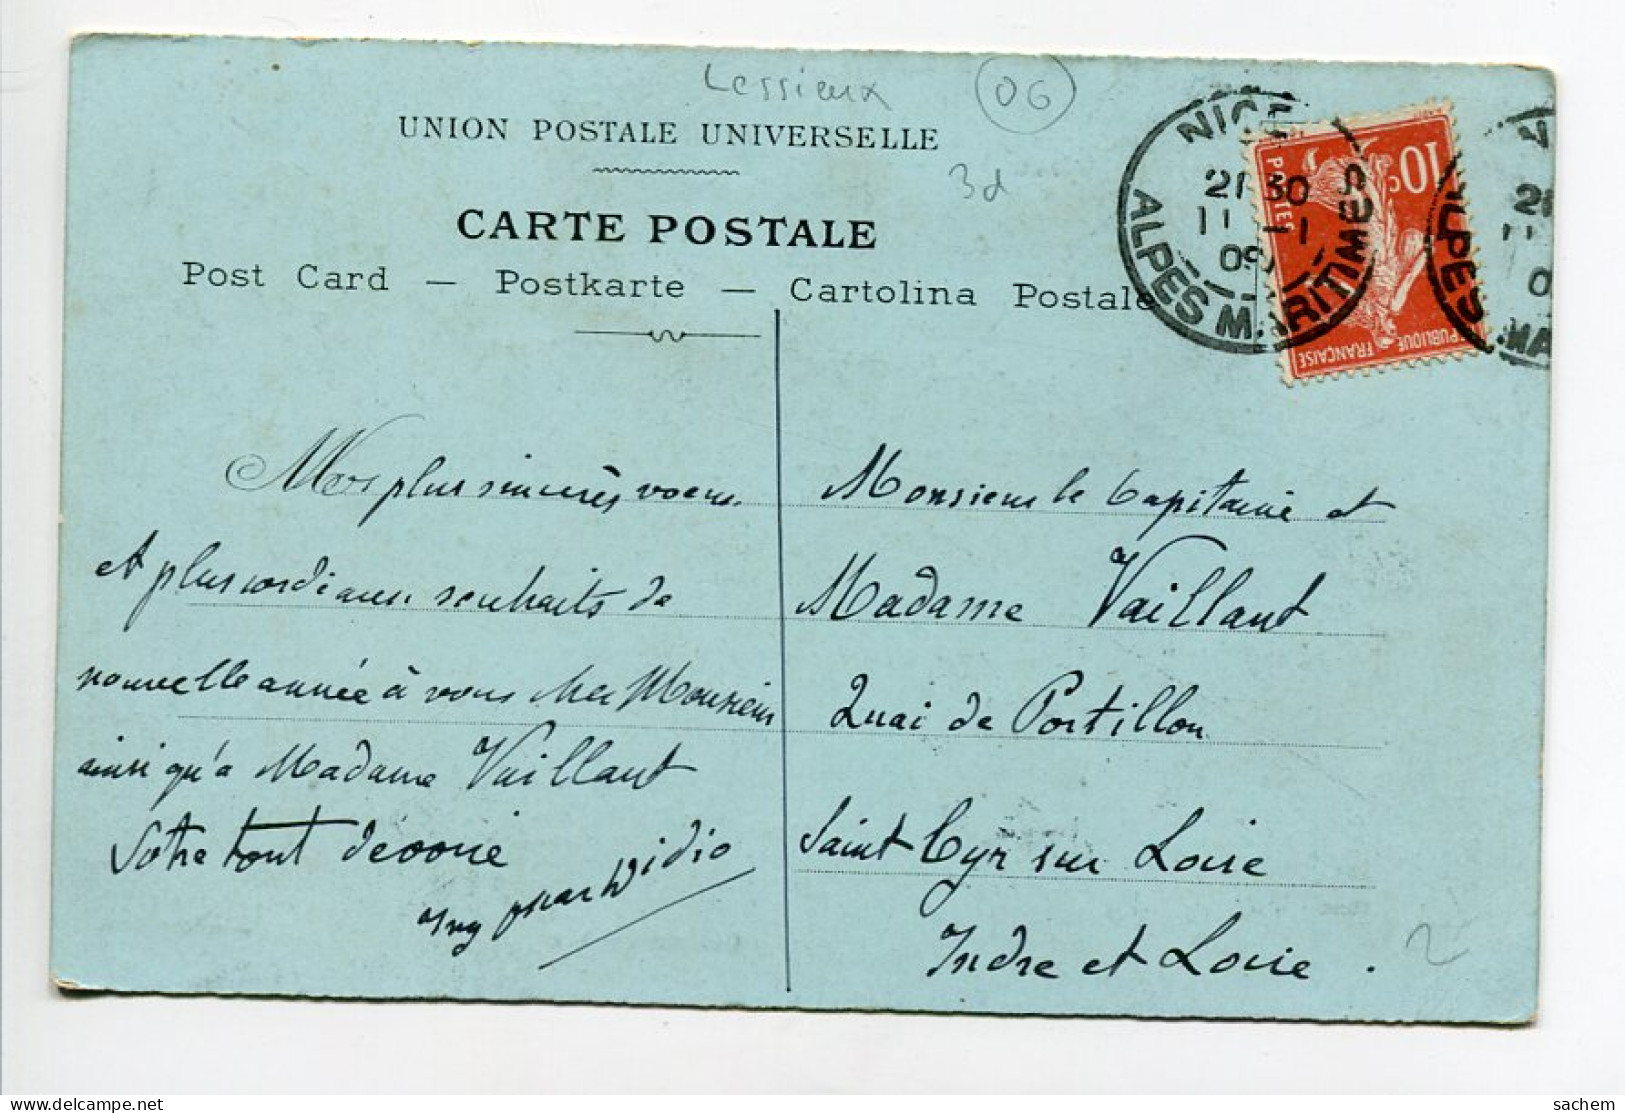 Lessieux
06
UNION POSTALE UNIVERSELLE
3d
CARTE POSTALE
Post Card — Postkarte — Cartolina Postale
NICE
21 30
11 1
09
ALPES MARITIMES
10c
POSTES
REPUBLIQUE FRANÇAISE
Mes plus sincères voeux
et plus cordiaux souhaits de
nouvelle année à vous Mr Monsieur
ainsi qu'a Madame Vaillant
Votre tout dévoué
Monsieur le Capitaine et
Madame Vaillant
Quai de Portillon
Saint Cyr sur Loire
Indre et Loire.
2
sachem